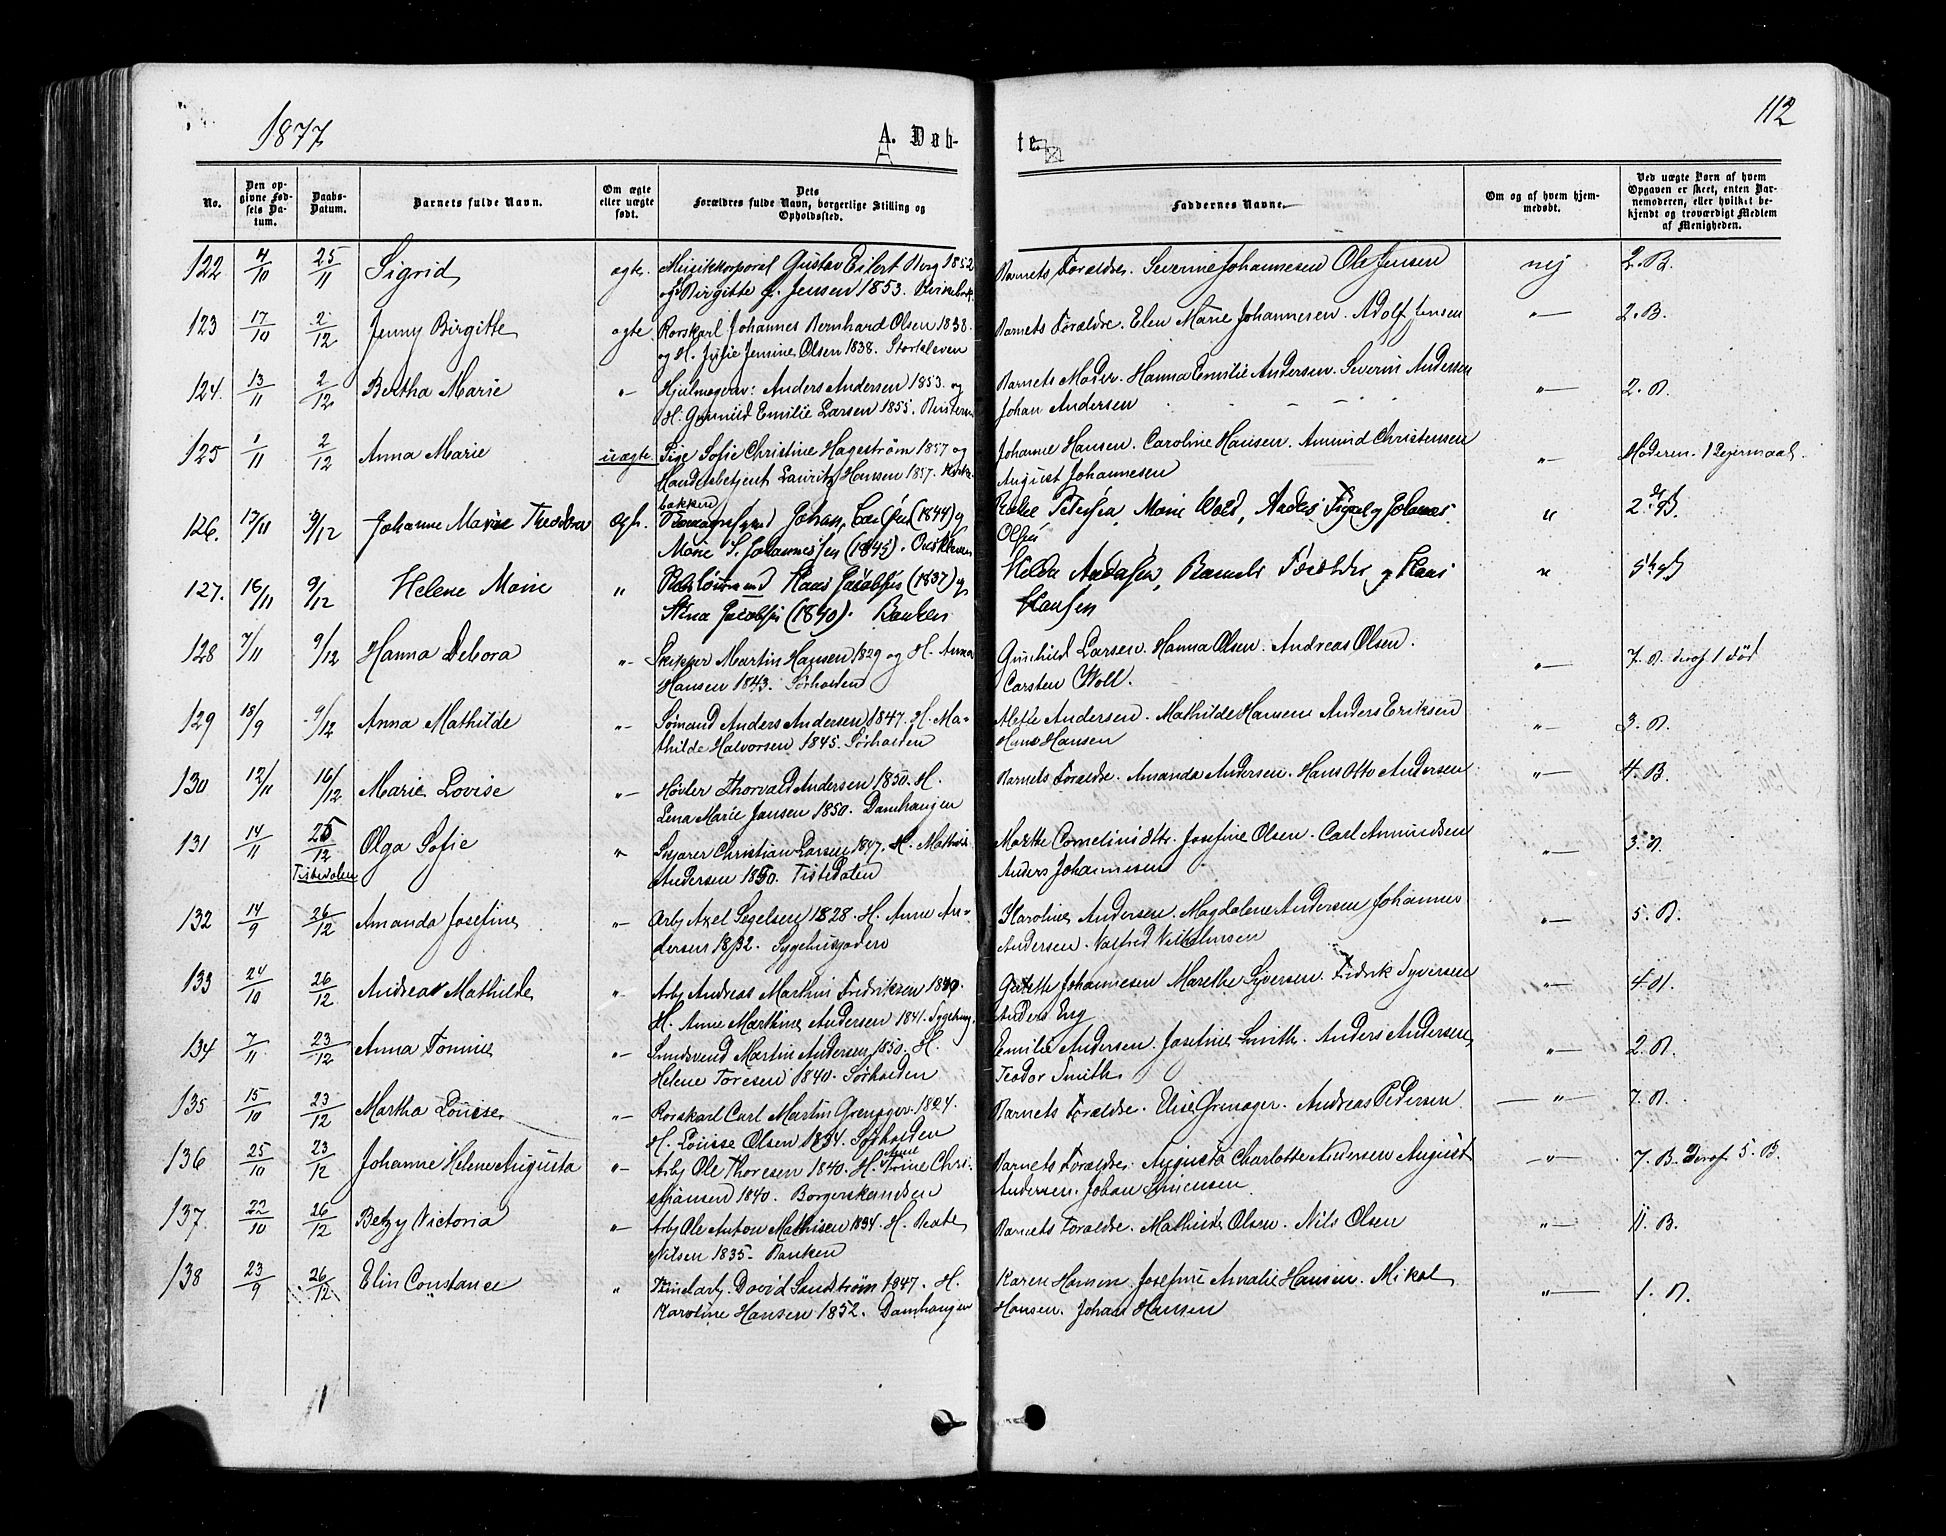 1877
A. Døb-
te.
112
No.
Den op-
givne Fød-
sels Da-
tum.
Daabs-
Datum.
Barnets fulde Navn.
Om ægte
eller uægte
født.
Dets
Forældres fulde Navn, borgerlige Stilling og
Opholdssted.
Faddernes Navne.
Om og af hvem hjem-
medøbt.
Ved uægte Børn af hvem
Opgaven er skeet, enten Bar-
nemoderen, eller hvilket be-
kjendt og troværdigt Medlem
af Menigheden.
122 4/10 25/11 Sigrid ægte. Musikkorporal Gustav Eilert Berg 1852 Barnets Forældre. Severine Johannesen Ole Jensen nej 2. B.
og Birgitte f. Jensen 1853.
123 17/10 2/12 Jenny Birgitte ægte. Rorskarl Johannes Bernhard Olsen 1838. Barnets Forældre. Elen Marie Johannesen. Adolf Jensen "— 2. B.
og H. Julie Jensine Olsen 1838. Storkleven
124. 13/11 2/12 Bertha Marie "– Hjulmagersv: Anders Andersen 1853. og Barnets Moder. Hanna Emilie Andersen. Severin Andersen "— 2. B.
H. Gunnild Emilie Larsen 1855. Johan Andersen
125 1/11 2/12 Anna Marie uægte Pige Sofie Christine Hagestrøm 1857 og Johanne Hansen. Caroline Hansen. Amund Christensen "– Moderen. 1 Lejermaal.
Handelsbetjent Lauritz Hansen 1857. Kirke-
bakken August Johannesen
126. 13/11 9/12 Johanne Marie Theodora Johan (1844) og Petersen, Marie Wold, Anders og Johannes " 2det B.
Marie S. Johannessen (1845). Olsen
127. 16/11 9/12 Helene Marie " Hans Jacobsen (1837) og Hilda Andersen, Barnets Forældre og Hans " 5te B
Stina Jacobsen (1840). Banken Hansen
128 7/11 9/12 Hanna Debora "– Skipper Martin Hansen 1829 og H. Anna Gunhild Larsen. Hanna Olsen. Andreas Olsen. "— 7. B. deraf 1 død
Hansen 1843. Sørhalden Carsten Woll.
129 18/9 9/12 Anna Mathilde "– Sømand Anders Andersen 1847. H. Ma- Alette Andersen. Mathilde Hansen Anders Eriksen "— 3. B.
thilde Halvorsen 1845. Sørhalden Hans Hansen
130 12/11 16/12 Marie Lovise "– Høvler Thorvald Andersen 1850. H. Barnets Forældre. Amanda Andersen. Hans Otto Andersen "— 4. B.
Lena Marie Jansen 1850. Damhaugen
131 14/11 25/12 Olga Sofie "– Skjærer Christian Larsen 1847. H. Mathilde Marthe Corneliusdtr. Josefine Olsen. Carl Amundsen "— 3. B.
Tistedalen Andersen 1850. Tistedalen Anders Johannesen
132 14/9 26/12 Amanda Josefine "– Arb. Axel Segelsen 1828. H. Anne An- Karoline Andersen. Magdalene Andersen Johannes "— 5. B.
dersen 1832. Sygehusgaden Andersen. Valfred Vilhelmsen
133 24/10 26/12 Andrea Mathilde "– Arb. Andreas Martin Fredriksen 1840. Johannesen Marethe Syversen. Fredrik Syversen "— 4 B.
H. Anne Marthine Andersen 1841. Sygehusg. Anders Eng
134 7/11 23/12 Anna "– Martin Andersen 1850. H. Emilie Andersen. Josefine Smith. Anders Andersen "— 2. B.
Helene Toresen 1840. Sørhalden Teodor Smith
135 15/10 23/12 Martha Louise "– Rorskarl Carl Martin Grenager 1824. Barnets Forældre. Elise Grenager. Andreas Pedersen. —"— 7. B.
H. Louise Olsen 1834. Sørhalden
136 25/10 23/12 Johanne Helene Augusta "– Arb. Ole Thoresen 1840. H. Anne Trine Chri- Barnets Forældre. Augusta Charlotte Andersen August "— 7. B. deraf 5. B.
stjansen 1840. Borgerskandsen Andersen. Johan Simensen
137. 22/10 26/12 Betzy Victoria "– Arb. Ole Anton Mathisen 1834. H. Beate Barnets Forældre. Mathilde Olsen. Nils Olsen "— 11. B.
Nilsen 1835. Banken
138 23/9 26/12 Elin Constance " David Sandstrøm 1847. H. Karen Hansen. Josefine Amalie Hansen. Mikal "— 1. B.
Karoline Hansen 1852. Damhaugen Hansen. Johan Hansen